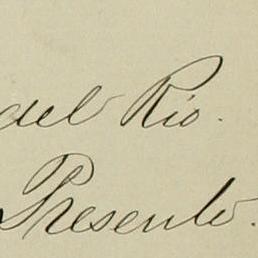 del Rio.
Presente.